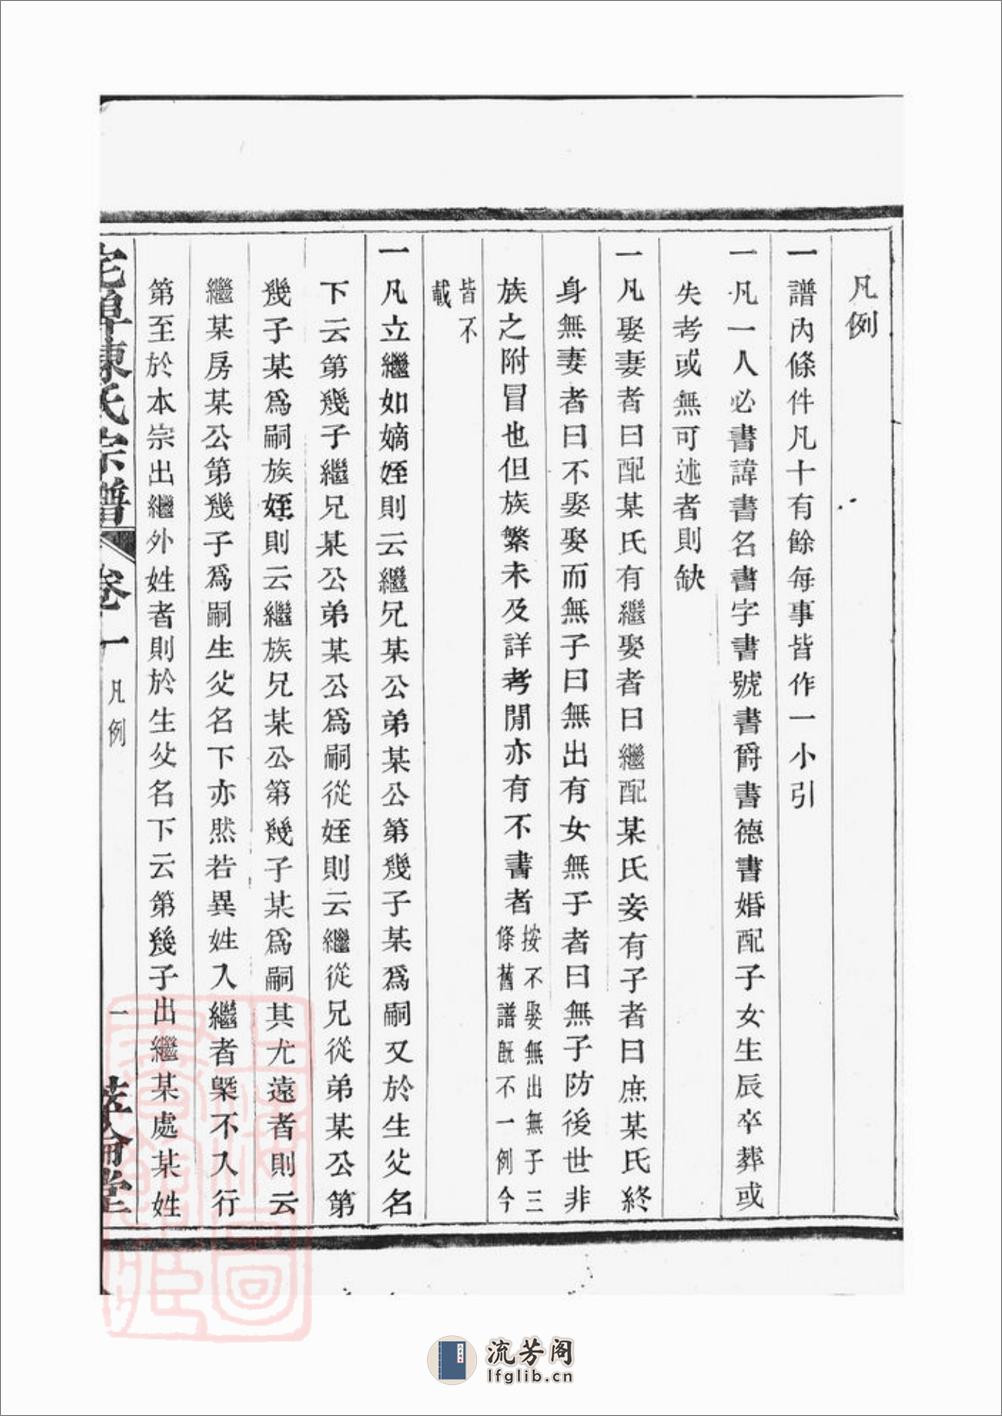 凡例
一譜內條件凡十有餘每事皆作一小引
一凡一人必書諱書名書字書號書爵書德書婚配子女生辰卒葬或
失考或無可述者則缺
一凡娶妻者曰配某氏有繼娶者曰繼配某氏妾有子者曰庶某氏終
身無妻者曰不娶娶而無子曰無出有女無子者曰無子防後世非
族之附冒也但族繁未及詳考閒亦有不書者按不娶無出無子三
條舊譜旣不一例今
皆不
載
一凡立繼如嫡姪則云繼兄某公弟某公第幾子某爲嗣又於生父名
下云第幾子繼兄某公弟某公爲嗣從姪則云繼從兄從弟某公第
幾子某爲嗣族姪則云繼族兄某公第幾子某爲嗣其尤遠者則云
繼某房某公第幾子爲嗣生父名下亦然若異姓入繼者槩不入行
第至於本宗出繼外姓者則於生父名下云第幾子出繼某處某姓
宅埠陳氏宗譜 卷一 凡例 一 萃倫堂
流芳阁
lfglib.cn